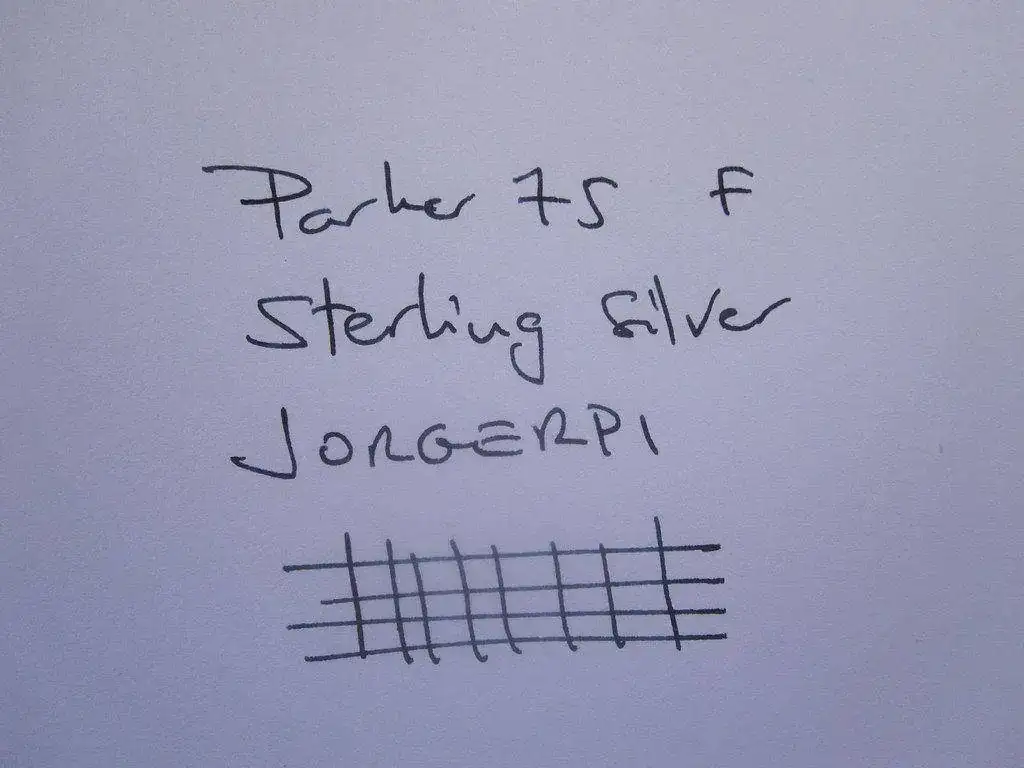 Parker 75 F
Sterling Silver
JORGERPI